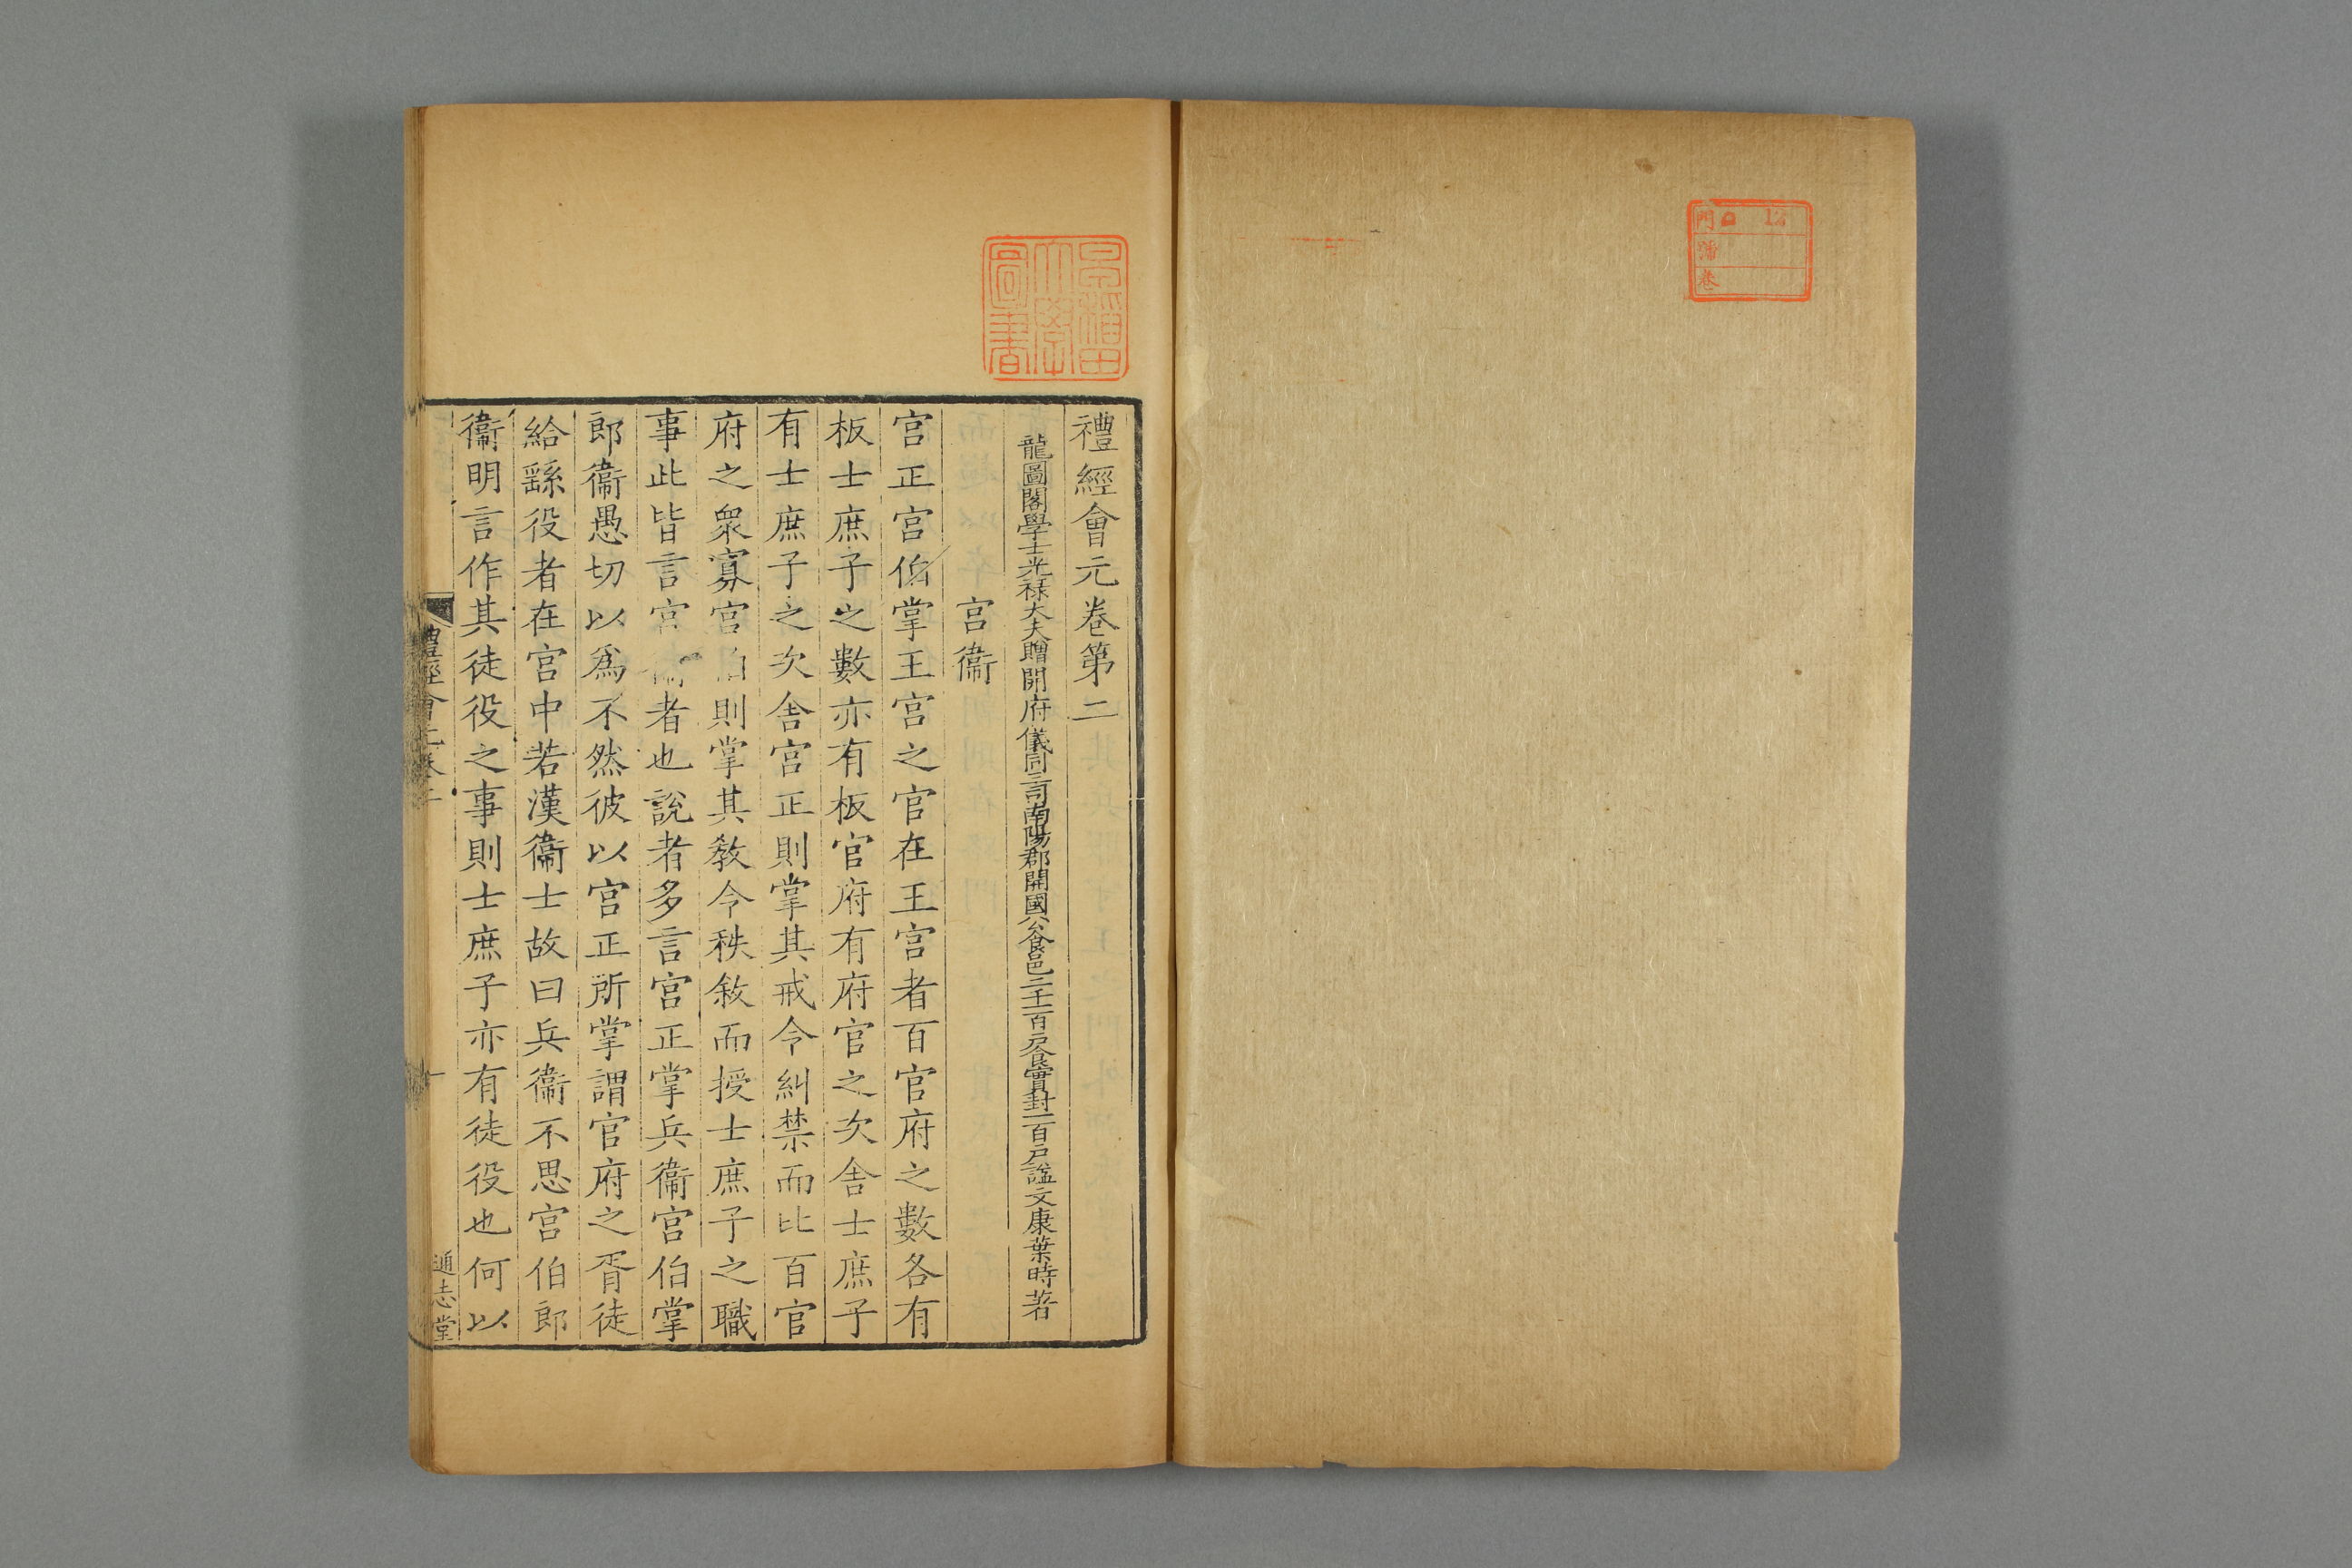 門 12
號
卷
早稲田
大學
圖書
禮經會元卷第二
龍圖閣學士光祿大夫贈開府儀同三司南陽郡開國公食邑二千一百戶食實封一百戶諡文康葉時著
宮衞
宮正宮伯掌王宮之官在王宮者百官府之數各有
板士庶子之數亦有板官府有府官之次舍士庶子
有士庶子之次舍宮正則掌其戒令糾禁而比百官
府之衆寡宮伯則掌其敎令秩敘而授士庶子之職
事此皆言宮衞者也說者多言宮正掌兵衞宮伯掌
郎衞愚切以爲不然彼以宮正所掌謂官府之胥徒
給繇役者在宮中若漢衞士故曰兵衞不思宮伯郎
衞明言作其徒役之事則士庶子亦有徒役也何以
禮經會元卷二
一
通志堂